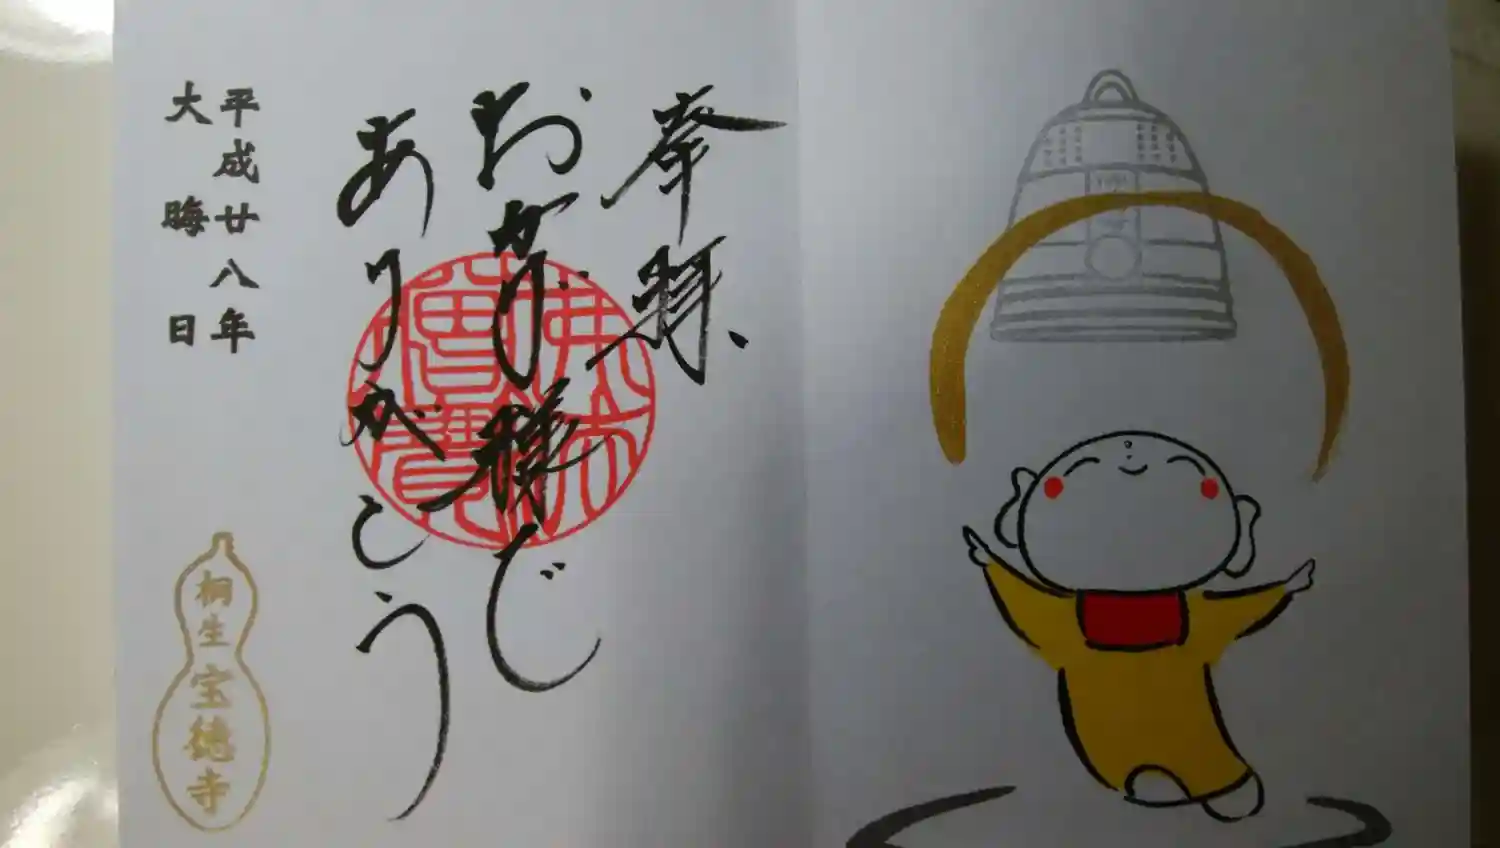 奉拝、
おかげ様で
ありがとう
佛法
僧寳
平成廿八年
大晦日
桐生
宝徳寺